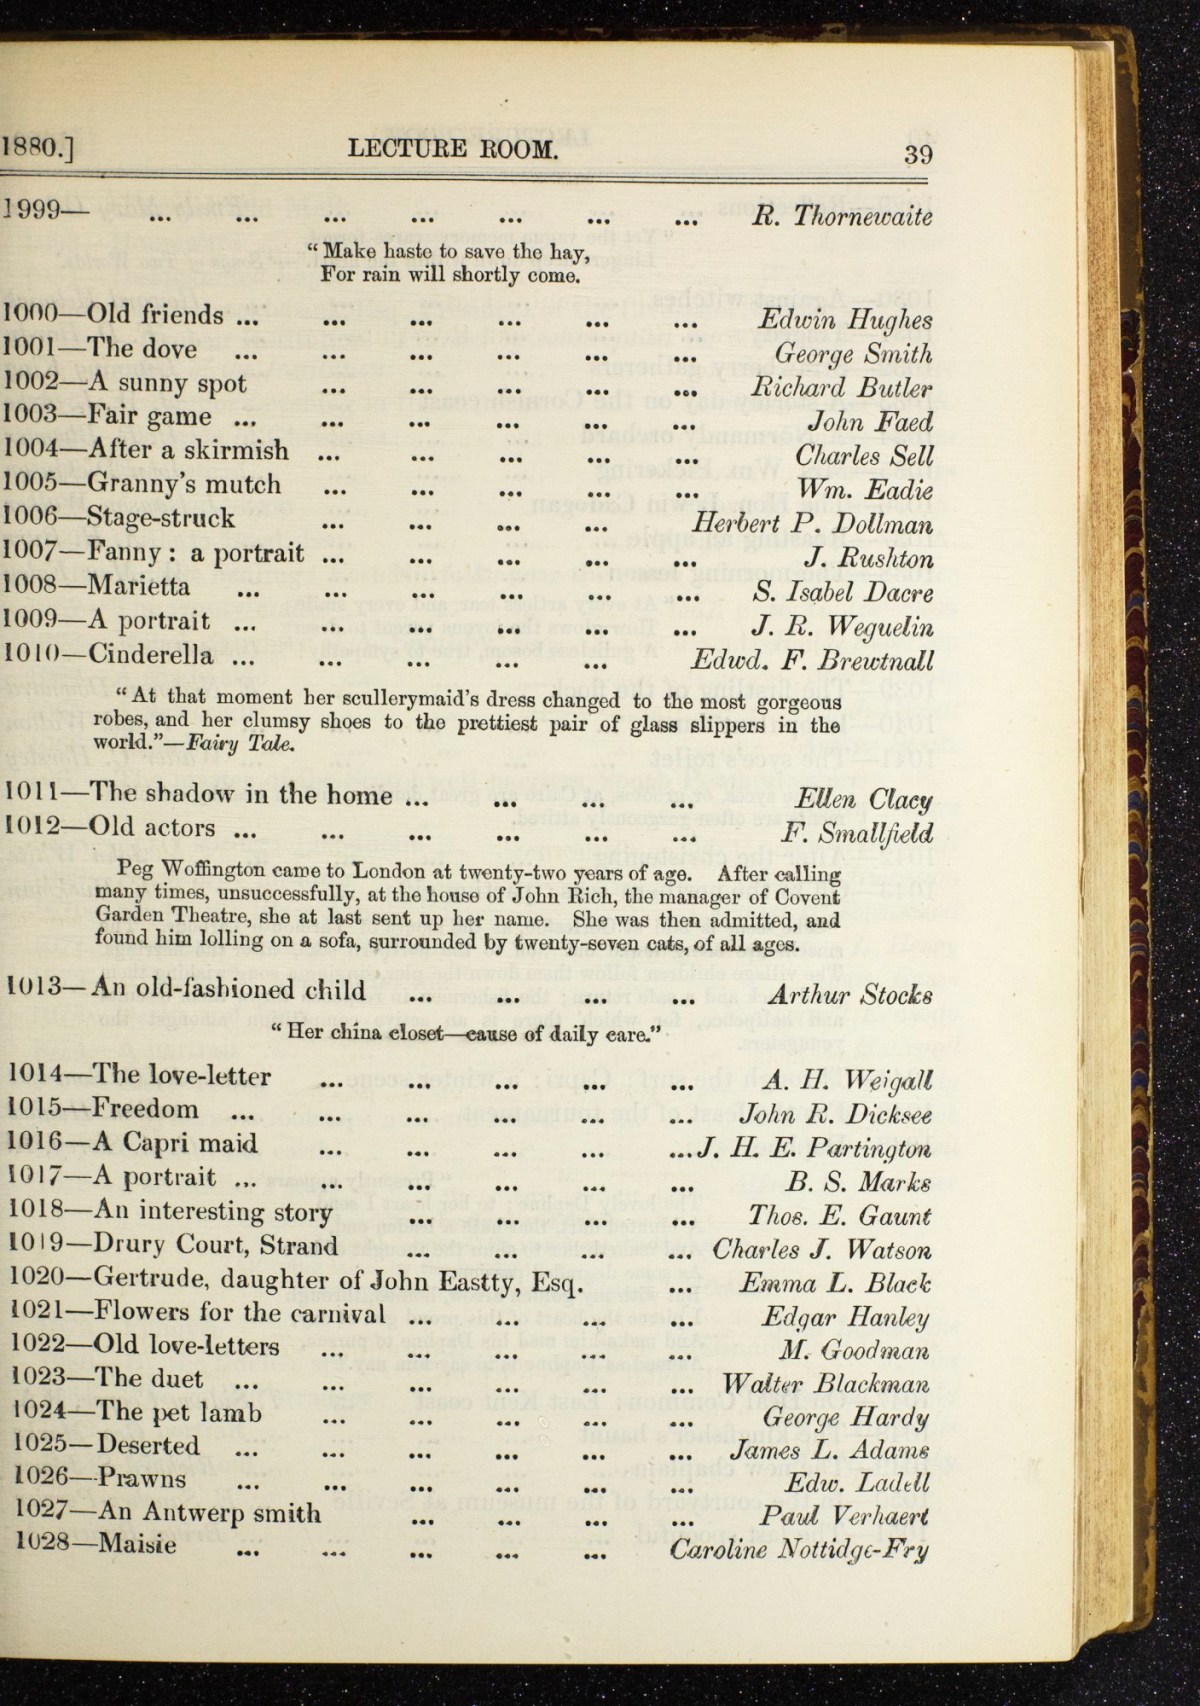 1880.] LECTURE ROOM. 39
1999— ... ... ... ... ... ... ... R. Thornewaite
“Make haste to save the hay,
For rain will shortly come.
1000—Old friends ... ... ... ... ... ... Edwin Hughes
1001—The dove ... ... ... ... ... ... George Smith
1002—A sunny spot ... ... ... ... ... Richard Butler
1003—Fair game ... ... ... ... ... ... John Faed
1004—After a skirmish ... ... ... ... ... Charles Sell
1005—Granny’s mutch ... ... ... ... ... Wm. Eadie
1006—Stage-struck ... ... ... ... Herbert P. Dollman
1007—Fanny: a portrait ... ... ... ... ... J. Rushton
1008—Marietta ... ... ... ... ... ... S. Isabel Dacre
1009—A portrait ... ... ... ... ... ... J. R. Weguelin
1010—Cinderella ... ... ... ... ... Edwd. F. Brewtnall
“At that moment her scullerymaid’s dress changed to the most gorgeous
robes, and her clumsy shoes to the prettiest pair of glass slippers in the
world.”—Fairy Tale.
1011—The shadow in the home ... ... ... ... Ellen Clacy
1012—Old actors ... ... ... ... ... ... F. Smallfield
Peg Woffington came to London at twenty-two years of age. After calling
many times, unsuccessfully, at the house of John Rich, the manager of Covent
Garden Theatre, she at last sent up her name. She was then admitted, and
found him lolling on a sofa, surrounded by twenty-seven cats, of all ages.
1013—An old-fashioned child ... ... ... ... Arthur Stocks
“Her china closet—cause of daily care.”
1014—The love-letter ... ... ... ... ... A. H. Weigall
1015—Freedom ... ... ... ... ... ... John R. Dicksee
1016—A Capri maid ... ... ... ... ... J. H. E. Partington
1017—A portrait ... ... ... ... ... ... B. S. Marks
1018—An interesting story ... ... ... ... Thos. E. Gaunt
1019—Drury Court, Strand ... ... ... ... Charles J. Watson
1020—Gertrude, daughter of John Eastty, Esq. ... Emma L. Black
1021—Flowers for the carnival ... ... ... ... Edgar Hanley
1022—Old love-letters ... ... ... ... ... M. Goodman
1023—The duet ... ... ... ... ... ... Walter Blackman
1024—The pet lamb ... ... ... ... ... George Hardy
1025—Deserted ... ... ... ... ... ... James L. Adams
1026—Prawns ... ... ... ... ... ... Edw. Ladell
1027—An Antwerp smith ... ... ... ... Paul Verhaert
1028—Maisie ... ... ... ... ... Caroline Nottidge-Fry